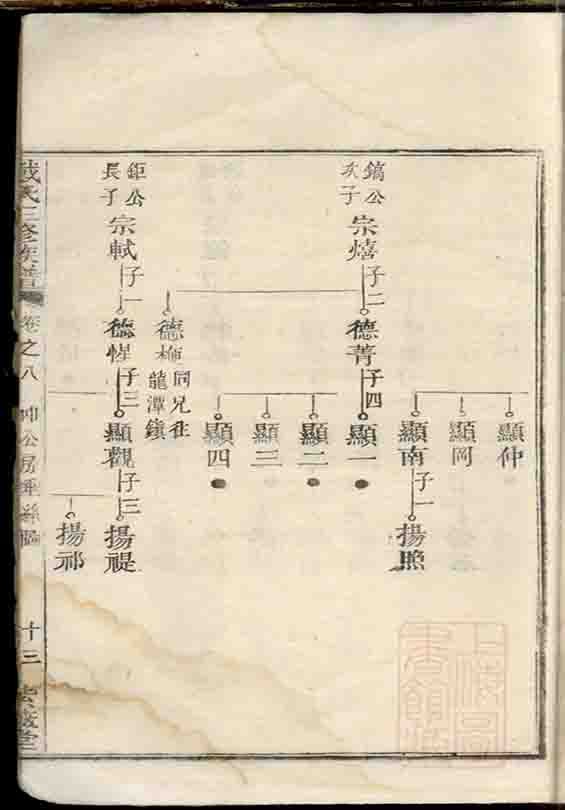 顯仲
顯岡
顯南
子一
揚照
鎬公
次子
宗熺
子二
德菁
子四
顯一
顯二
顯三
顯四
德
同兄徃
龍潭鎮
鉅公
長子
宗軾
子一
德惺
子三
顯觀
子三
揚禔
揚祁
戴氏三修族譜
卷之八
公房
十三